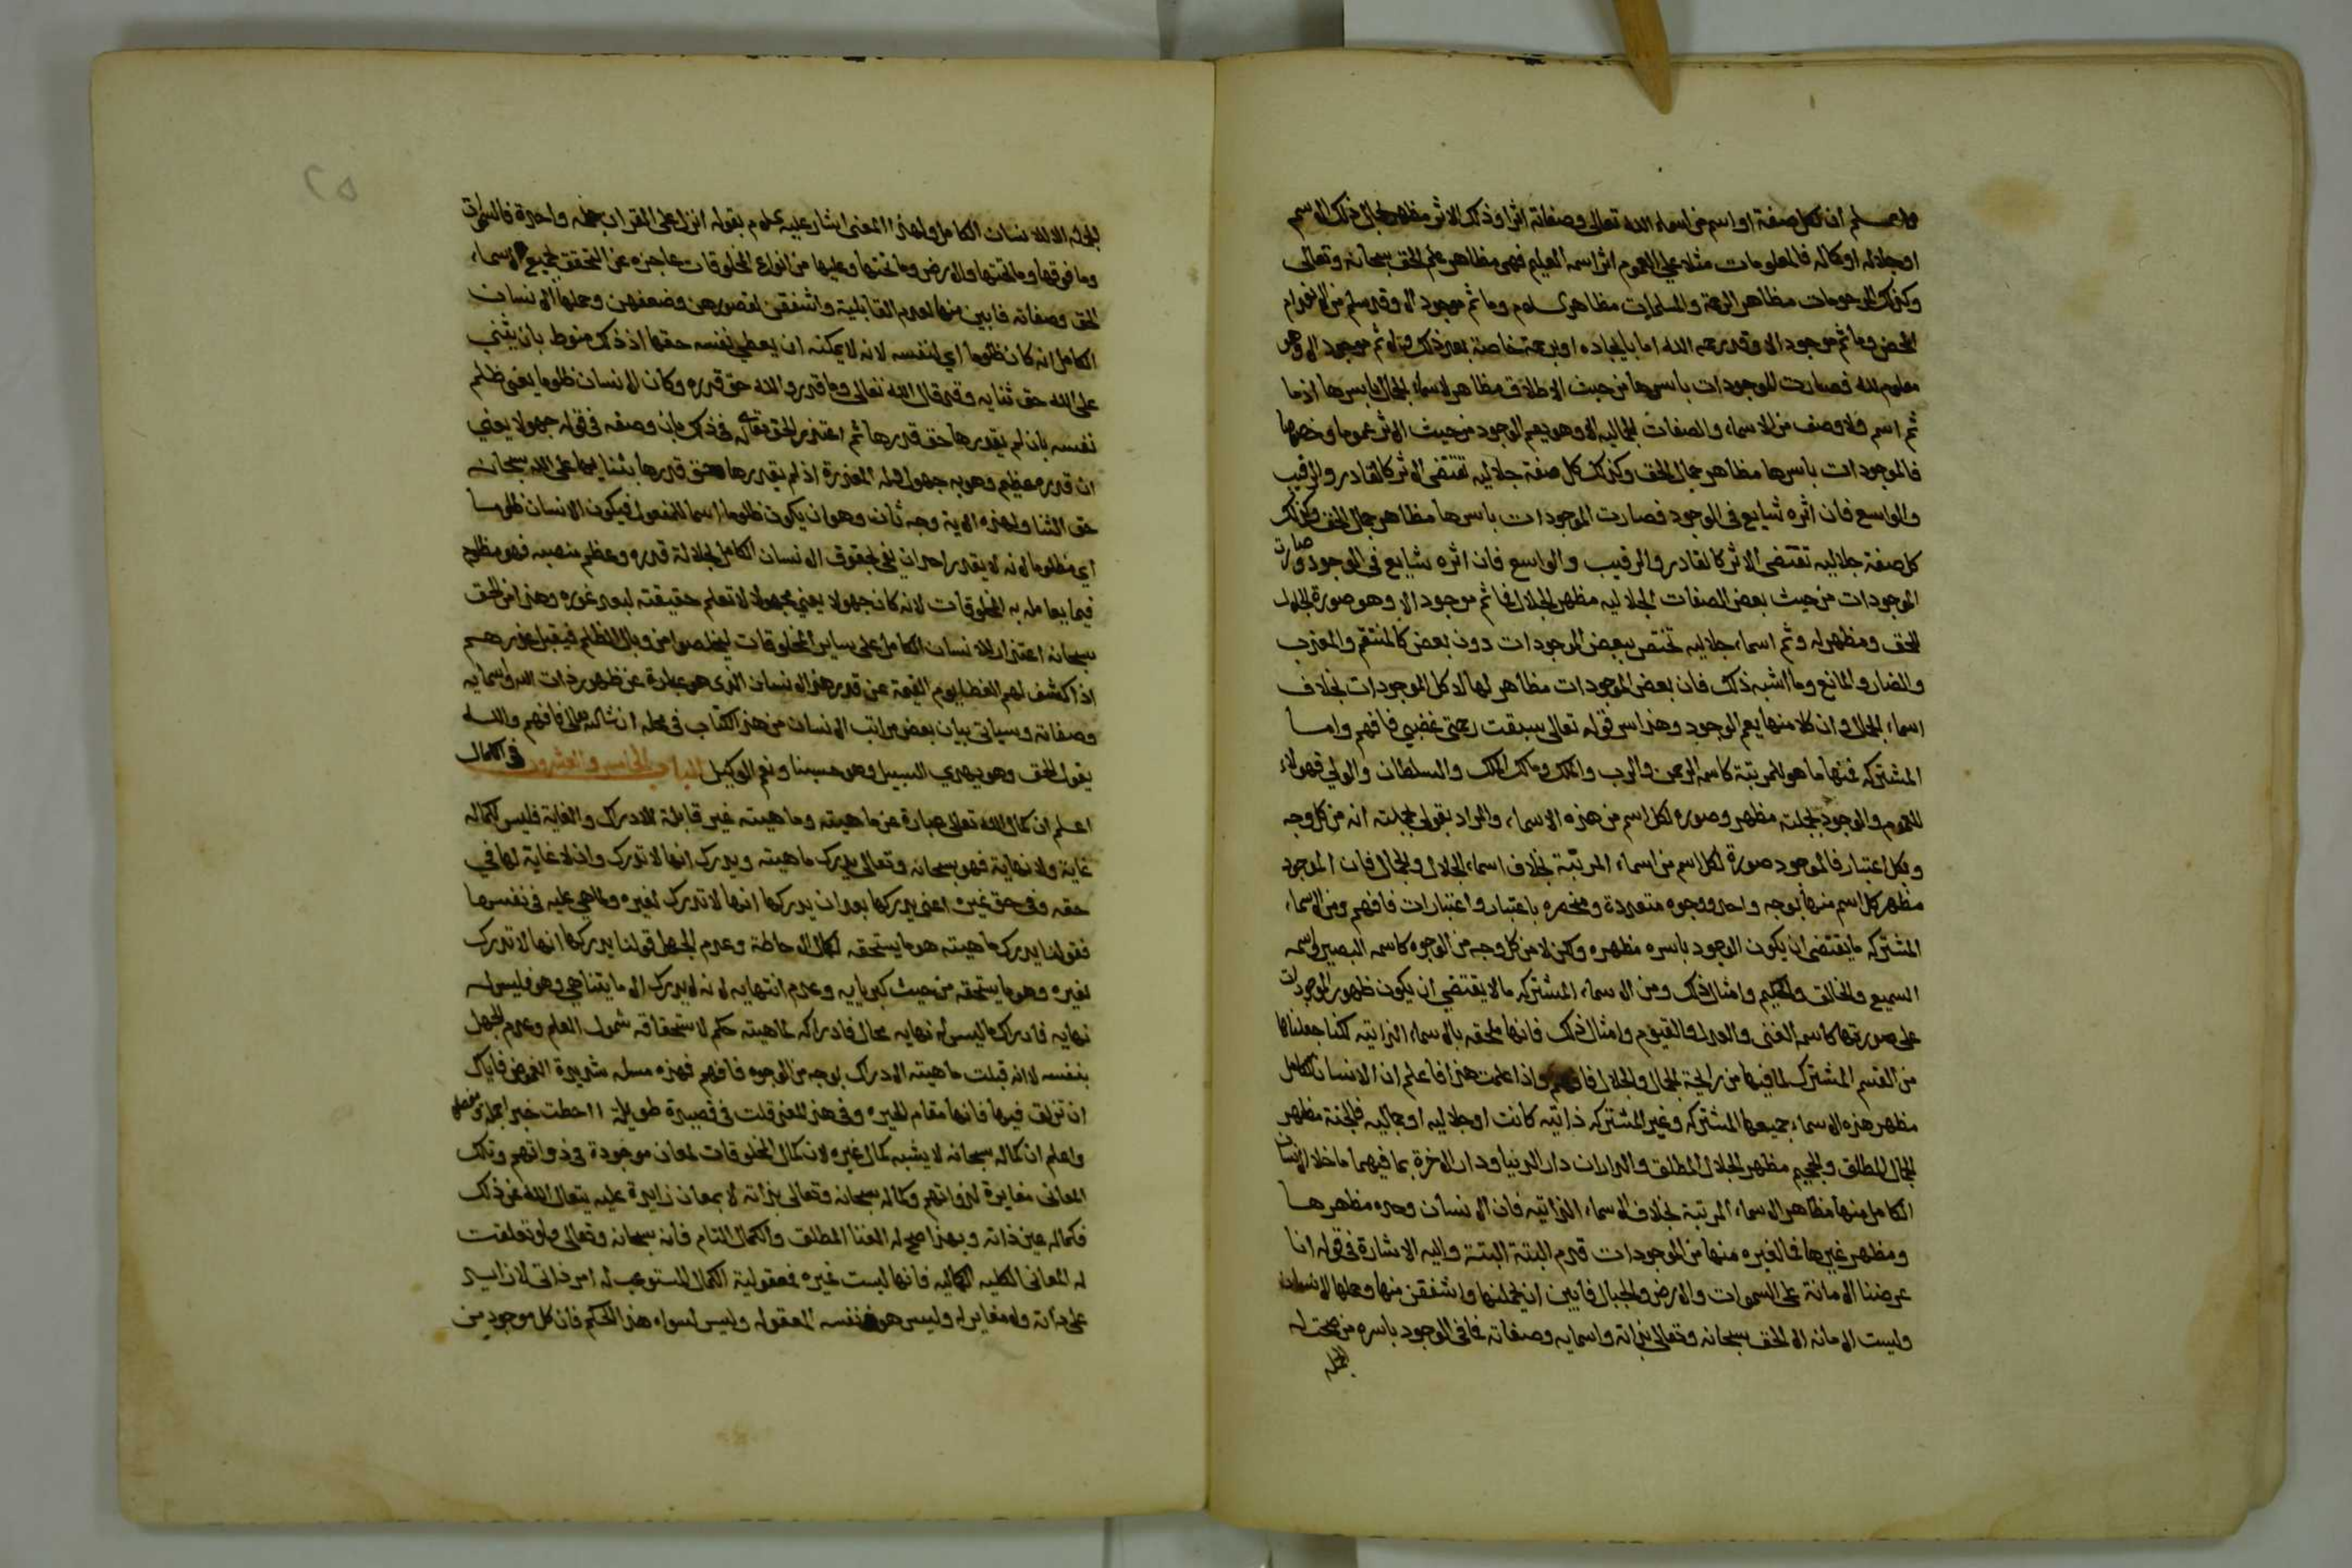 واعلم ان لكل صفة او اسم من اسماء الله تعالى وصفاته اثرا وذلك الاثر مظهر لجمال ذلك الاسم
او جلاله او كماله فالمعلومات مثلا على العموم اثر اسمه العليم فهي مظاهر علم الحق سبحانه وتعالى
وكذلك المرحومات مظاهر الرحمة والمسلمات مظاهر السلام وما ثم موجود الا وقد سلم من الانعدام
المحض وما ثم موجود الا وقد رحمه الله اما بايجاده او برحمة خاصة بعد ذلك ولا ثم موجود الا وهو
معلوم لله فصارت الموجودات باسرها من حيث الاطلاق مظاهر لاسماء الجمال باسرها اذ ما
ثم اسم ولا وصف من الاسماء والصفات الجماليه الا وهو يعم الوجود من حيث الاثر عموما وخصوصا
فالموجودات باسرها مظاهر جمال الحق وكذلك كل صفة جلاليه تقتضى الاثر كالقادر والرقيب
والواسع فان اثره شايع فى الوجود فصارت الموجودات باسرها مظاهر جمال الحق وكذلك
كل صفة جلاليه تقتضى الاثر كالقادر والرقيب والواسع فان اثره شايع فى الوجود وصارت
الموجودات من حيث بعض الصفات الجلاليه مظهر الجلال فما ثم موجود الا وهو صورة لجلال
الحق ومظهر له وثم اسماء جلاليه تختص ببعض الموجودات دون بعض كالمنتقم والمعذب
والضار والمانع وما اشبه ذلك فان بعض الموجودات مظاهر لها لا كل الموجودات بخلاف
اسماء الجمال فان كلا منها يعم الوجود وهذا سر قوله تعالى سبقت رحمتى غضبي فافهم واما
المشتركه فمنها ما هو للمرتبة كاسمه الرحمن والرب والملك ومالك الملك والسلطان والولي فهولاء
للعموم والوجود بجملته مظهر وصوره لكل اسم من هذه الاسماء والمراد بقولى بجملته انه من كل وجه
وبكل اعتبار فالموجود صورة لكل اسم من اسماء المرتبة بخلاف اسماء الجلال والجمال فان الموجود
مظهر كل اسم منها بوجه واحد ووجوه متعددة باعتبار واعتبارات فافهم ومن الاسماء
المشتركه ما يقتضى ان يكون الوجود باسره مظهره ولكن لا من كل وجه من الوجوه كاسمه البصير واسمه
السميع والخالق والحكيم وامثال ذلك ومن الاسماء المشتركه ما لا يقتضي ان يكون ظهور الموجودات
على صورتها كاسمه الغنى والعدل والقيوم وامثال ذلك فانها ملحقه بالاسماء الذاتيه لكنا جعلناها
من القسم المشترك لما فيها من رايحة الجمال والجلال فافهم واذا علمت هذا فاعلم ان الانسان الكامل
مظهر هذه الاسماء جميعها المشتركه وغير المشتركه ذاتيه كانت او جلاليه او جماليه فالجنة مظهر
الجمال المطلق والجحيم مظهر الجلال المطلق والداران دار الدنيا ودار الاخرة بما فيهما ما خلا الانسان
الكامل منها مظاهر الاسماء المرتبة بخلاف الاسماء الذاتيه فان الانسان وحده مظهرها
ومظهر غيرها فما لغيره منها من الموجودات قدم البتة البتة واليه الاشارة فى قوله انا
عرضنا الامانة على السموات والارض والجبال فابين ان يحملنها واشفقن منها وحملها الانسان
وليست الامانه الا الحق سبحانه وتعالى بذاته واسمايه وصفاته فما فى الوجود باسره من صحت له
الجمله
الجمله الا الانسان الكامل ولهذا المعنى اشار عليه السلام بقوله انزل على القران جملة واحدة فالسموات
وما فوقها وما تحتها والارض وما تحتها وعليها من انواع المخلوقات عاجزه عن التحقق بجميع الاسماء
الحق وصفاته فابين منها لعدم القابلية واشفقن لقصورهن وضعفهن وحملها الانسان
الكامل انه كان ظلوما اي لنفسه لانه لا يمكنه ان يعطي نفسه حقها اذ ذلك منوط بان يثني
على الله حق ثنايه وقد قال الله تعالى وما قدروا الله حق قدره وكان الانسان ظلوما يعنى ظلم
نفسه بان لم يقدرها حق قدرها ثم اعتذر الحق تعالى له فى ذلك بان وصفه فى قوله جهولا يعني
ان قدره عظيم وهو به جهول فله المعذرة اذ لم يقدرها حق قدرها بثنايها على الله سبحانه
حق الثنا ولهذه الاية وجه ثان وهو ان يكون ظلوما اسما للمفعول فيكون الانسان ظلوما
اي مظلوما لانه لا يقدر احد ان يفي بحقوق الانسان الكامل لجلالة قدره وعظم منصبه فهو مظلوم
فيما يعامله به المخلوقات لانه كان جهولا يعني مجهولا لا تعلم حقيقته لبعد غوره وهذا من الحق
سبحانه اعتذار للانسان الكامل على ساير المخلوقات ليخلصوا من وبال الظلم فيقبل عذرهم
اذا كشف لهم الغطا يوم القيمة عن قدر هذا الانسان الذى هو عبارة عن ظهور ذات الله واسمايه
وصفاته وسياتى بيان بعض مراتب الانسان من هذا الكتاب فى محله ان شا الله تعالى فافهم والله
يقول الحق وهو يهدي السبيل وهو حسبنا ونعم الوكيل الباب الخامس والعشرون فى الكمال
اعلم ان كمال الله تعالى عبارة عن ماهيته وماهيته غير قابلة للادراك والغاية فليس لكماله
غاية ولا نهاية فهو سبحانه وتعالى يدرك ماهيته ويدرك انها لا تدرك وان لا غاية لها فى
حقه وفى حق غيره اعنى يدركها بعد ان يدركها انها لا تدرك لغيره ولما هي عليه فى نفسها
فقولنا يدرك ماهيته هو ما يستحقه لكمال الاحاطة وعدم الجهل قولنا يدركها انها لا تدرك
لغيره وهو ما يستحقه من حيث كبريايه وعدم انتهايه لانه لا يدرك الا ما يتناهى وهو فليس له
نهايه فادراك ما ليس له نهايه محال فادراكه لماهيته حكم لاستحقاقه شمول العلم وعدم الجهل
بنفسه لا انه قبلت ماهيته الادراك بوجه من الوجوه فافهم فهذه مسله شديدة الغموض فاياك
ان تزلق فيها فانها مقام الحيره وفى هذا المعنى قلت فى قصيدة طويلة ااحطت خبرا مجملا ومفصلا
واعلم ان كماله سبحانه لا يشبه كمال غيره لان كمال المخلوقات لمعان موجودة فى ذواتهم وتلك
المعانى مغايرة لذواتهم وكماله سبحانه وتعالى بذاته لا بمعان زايدة عليه يتعالى الله عن ذلك
فكماله عين ذاته وبهذا صح له الغنا المطلق والكمال التام فانه سبحانه وتعالى ولو تعلقت
له المعانى الكليه الكماليه فانها ليست غيره فمعقولية الكمال المستوعب له امر ذاتى لا زايد
على ذاته ولا مغاير له وليس هو نفسه المعقوله وليس لسواه هذا الحكم فان كل موجود من